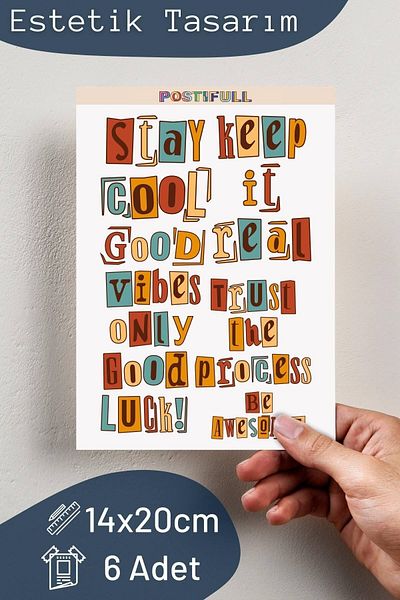 Estetik Tasarım
POSTIFULL
Stay keep
COOL it
GOOD real
vibes Trust
ONly the
Good process
LUCK! Be
Awesome
14x20cm
6 Adet